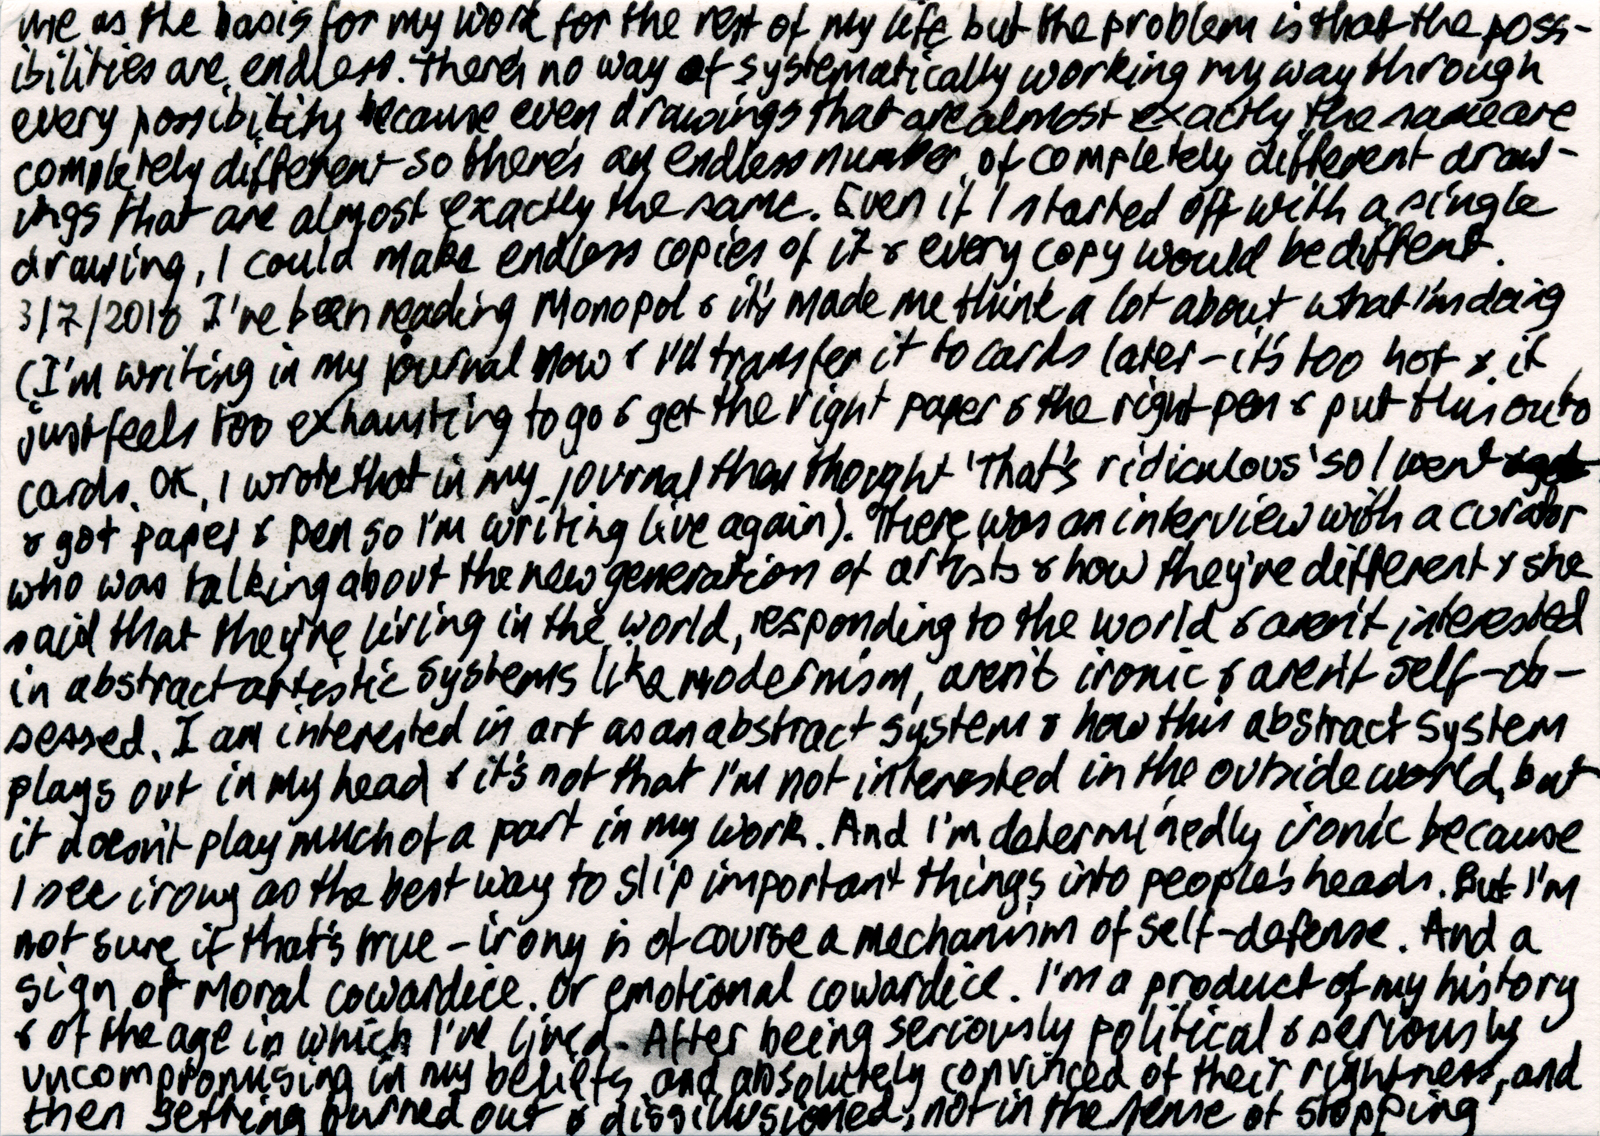 me as the basis for my work for the rest of my life but the problem is that the poss-
ibilities are endless. There's no way of systematically working my way through
every possibility because even drawings that are almost exactly the same are
completely different so there's an endless number of completely different draw-
ings that are almost exactly the same. Even if I started off with a single
drawing, I could make endless copies of it & every copy would be different.
3/7/2018 I've been reading Monopol & it's made me think a lot about what I'm doing
(I'm writing in my journal now & I'll transfer it to cards later - it's too hot & it
just feels too exhausting to go & get the right paper & the right pen & put this onto
cards. OK, I wrote that in my journal then thought 'That's ridiculous' so I went
& got paper & pen so I'm writing live again). There was an interview with a curator
who was talking about the new generation of artists & how they're different & she
said that they're living in the world, responding to the world & aren't interested
in abstract artistic systems like modernism, aren't ironic & aren't self-ob-
sessed. I am interested in art as an abstract system & how this abstract system
plays out in my head & it's not that I'm not interested in the outside world, but
it doesn't play much of a part in my work. And I'm determinedly ironic because
I see irony as the best way to slip important things into people's heads. But I'm
not sure if that's true - irony is of course a mechanism of self-defense. And a
sign of moral cowardice. Or emotional cowardice. I'm a product of my history
& of the age in which I've lived. After being seriously political & seriously
uncompromising in my beliefs and absolutely convinced of their rightness, and
then getting burned out & dissillusioned, not in the sense of stopping